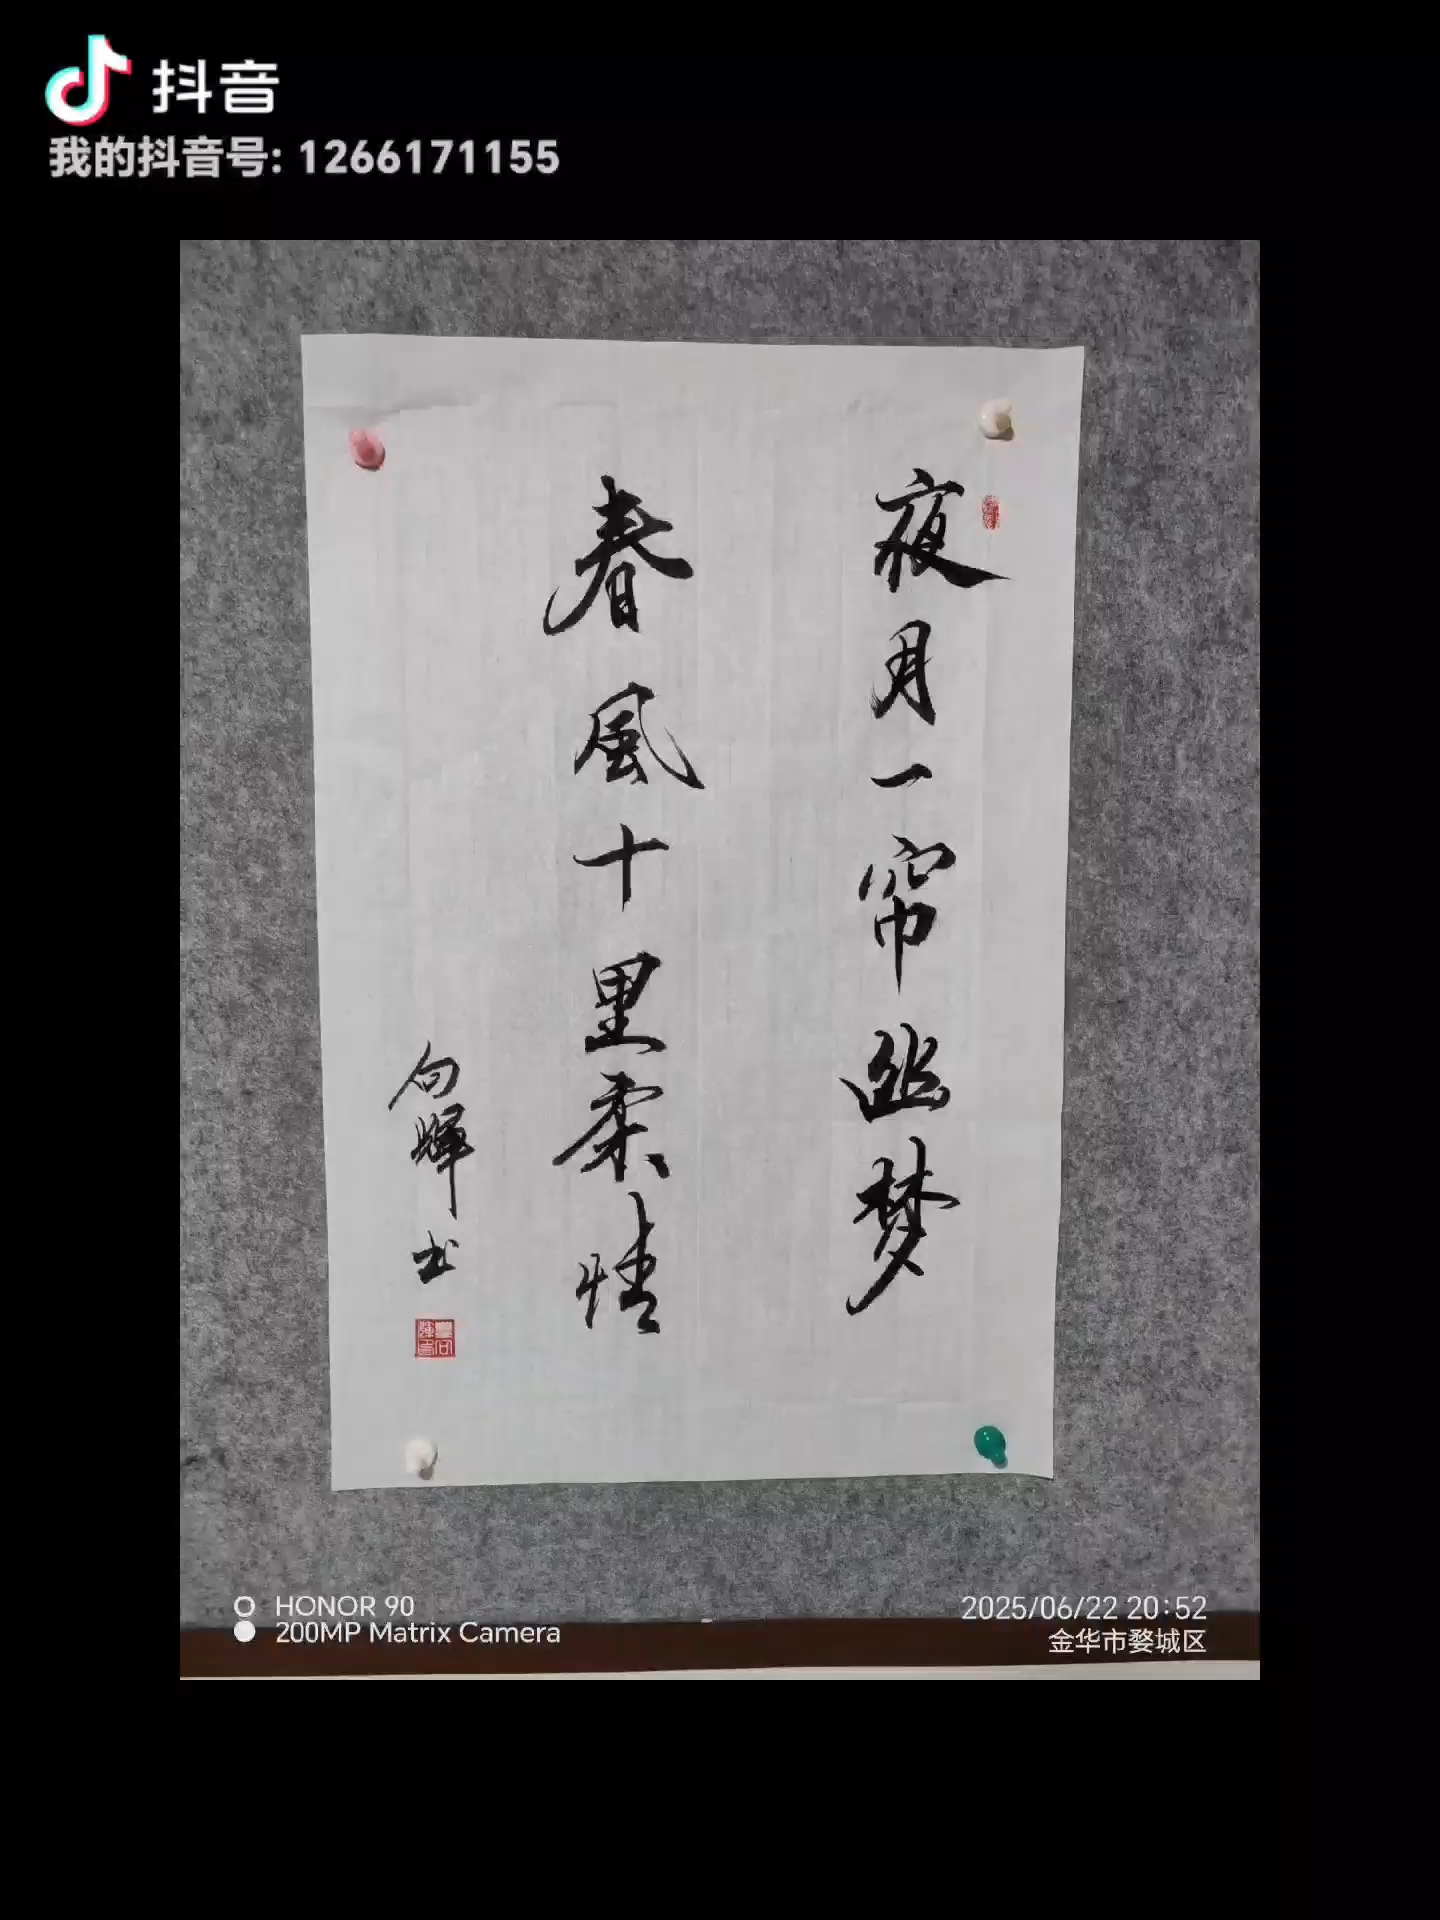 抖音
我的抖音号: 1266171155
夜月一帘幽梦
春風十里柔情
向暉书
HONOR 90
200MP Matrix Camera
2025/06/22 20:52
金华市婺城区